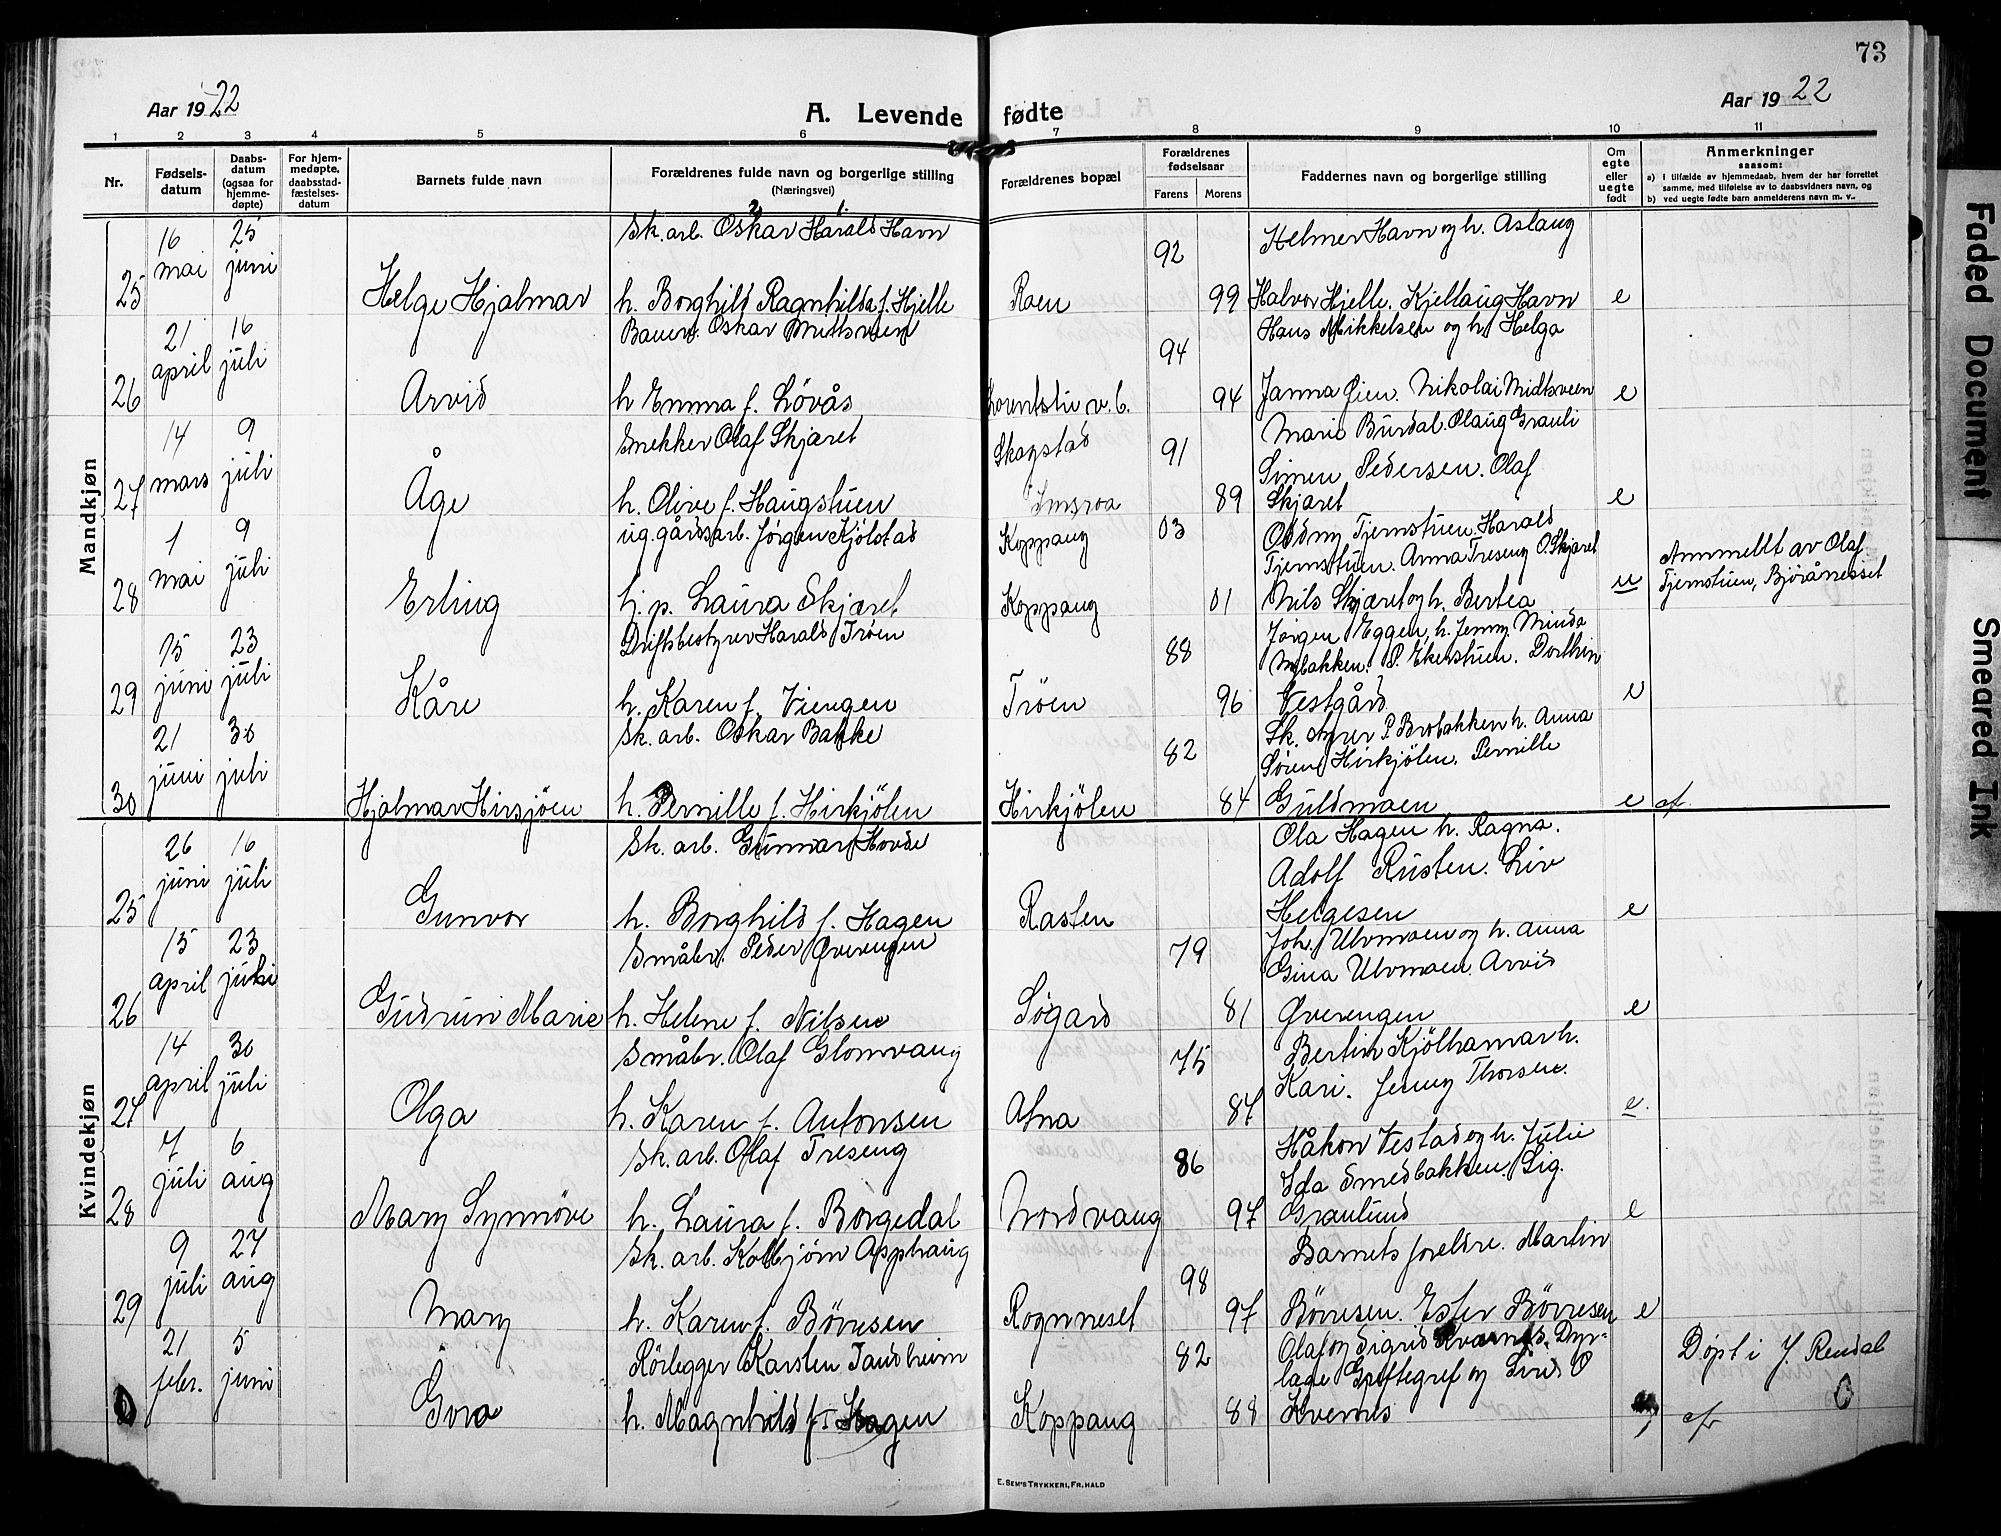 73
Aar 1922
A. Levende fødte
Aar 1922
1 2 3 4 5 6 7 8 9 10 11
Nr.
Fødsels-
datum
Daabs-
datum
(ogsaa for
hjemme-
døpte)
For hjem-
medøpte,
daabsstad-
fæstelses-
datum
Barnets fulde navn
Forældrenes fulde navn og borgerlige stilling
(Næringsvei)
Forældrenes bopæl
Forældrenes
fødselsaar
Farens Morens
Faddernes navn og borgerlige stilling
Om
egte
eller
uegte
født
Anmerkninger
saasom:
a) I tilfælde av hjemmedaab, hvem der har forrettet
samme, med tilføielse av to daabsvidners navn, og
b) ved uegte fødte barn anmelderens navn m. v..
Mandkjøn
2 1.
16 25 Sk. arb. Oskar Harald Havn 92 Helmer Havn og h. Aslaug
mai juni
25 Helge Hjalmar h. Borghild Ragnhilda f. Hjelle Roen 99 Halvor Hjelle. Kjellaug Havn e
21 16 Bauer. Oskar Mittsveen 94 Hans Mikkelsen og h. Helga
april juli
26 Arvid h Emma f. Løvås v. b. 94 Janna Øien. Nikolai Midtsveen e
14 9 Snekker Olaf Skjæret Skogstad 91 Marie Burdal. Olaug Grauli
mars juli Simen Pedersen. Olaf
27 Åge h. Olive f. Haugstuen Imsroa 89 Skjæret e
1 9 ug. gårdsarb. Jørgen Kjølstad Koppang 03 Oddny Tjernstuen. Harald
mai juli Tjernstuen. Anna Treseng O. Skjæret Anmeldt av Olaf
28 Erling h. p. Laura Skjæret Koppang 01 Nils Skjæret og h. Bertea u Tjernstuen, Bjørånesset
15 23 Driftsbestyrer Harald Trøen 88 Jørgen Eggen, h. Jenny. Minda
juni juli P. Ekerstuen. Dorthin
29 Kåre h. Karen f. Viengen Trøen 96 Vestgård e
21 30 Sk. arb. Oskar Bakke 82 Sk. P. Brobakken h. Anna
juni juli Søren Hirkjølen. Pernille
30 Hjalmar Hirsjøen h. Pernille f. Hirkjølen Hirkjølen 84 Guldmoen e af.
Kvindekjøn
26 16 Sk. arb. Gunnar Hovde Ola Hagen h. Ragna.
juni juli Adolf Rusten. Liv
25 Gunvor h. Borghild f. Hagen Rasten Helgesen e
15 23 Småbr. Peder Øverengen 79 Joh. Ulvmoen og h. Anna
april juli Gina Ulvmoen. Arvid
26 Gudrun Marie h. Helene f. Nilsen Søgård 81 Øverengen e
14 30 Småbr. Olaf Glomvang 75 Bertin Kjølhamar h.
april juli Kari. Jenny Thorsen.
27 Olga h. Karen f. Antonsen Atna 87 e.
7 6 Sk. arb. Olaf Treseng 86 Håkon Vestad og h. Julie
juli aug Ida Smedbakken. Sig.
28 Mary Synnöve h. Laura f. Borgedal Nordvang 97 Granlund e
9 27 Sk. arb. Kolbjørn Opphaug 98 Barnets foreldre. Martin
juli aug
29 Mary h. Karen f. Børresen Rognneset 97 Børresen. Ester Børresen e
21 5 Rørlegger Karsten Sandheim 82 Olaf og Sigrid Kvernes. Dyr-
febr. juni læge Griftegref og Siri O Døpt i Y. Rendal
0 Gora h. Magnhild f. Hagen Koppang 88 Kvernes 0
E. Sem's Trykkeri, Fr.hald
Faded Document
Smeared Ink